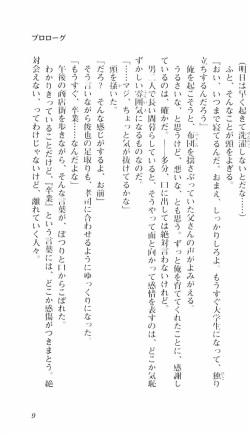 プロローグ
『明日は早く起きて洗濯しないとな……』
ふと、そんなことが頭をよぎる。
『おい、いつまで寝てるんだ。おまえ、しっかりしろよ、もうすぐ大学生になって、独り
立ちするんだろう』
俺を起こそうと、布団を揺さぶっていた父さんの声がよみがえる。
うるさいな、と思うけど、想いな、とも思う。ずっと俺を育ててくれたことに、感謝し
ているのは、確かだ。――多分、口に出しては絶対言わないけれど。
男二人で長い間暮らしていると、そうやって面と向かって感情を表すのは、どこか気恥
ずかしい雰囲気になるものなのだ。
『……マジ、ちょっと気が抜けてるかな』
頭を掻いた。
『だろ？ そんな感じがするよ、お前』
そう言いながら俊也の足取りも、孝司に合わせるようにゆっくりになった。
『もうすぐ、卒業……なんだよな』
午後の商店街を歩きながら、そんな言葉が、ぽつりと口からこぼれた。
わかりきっていることだけど、『卒業』という言葉には、どこか感傷がつきまとう。絶
対会えない、ってわけじゃないけど、離れていく人々。
9